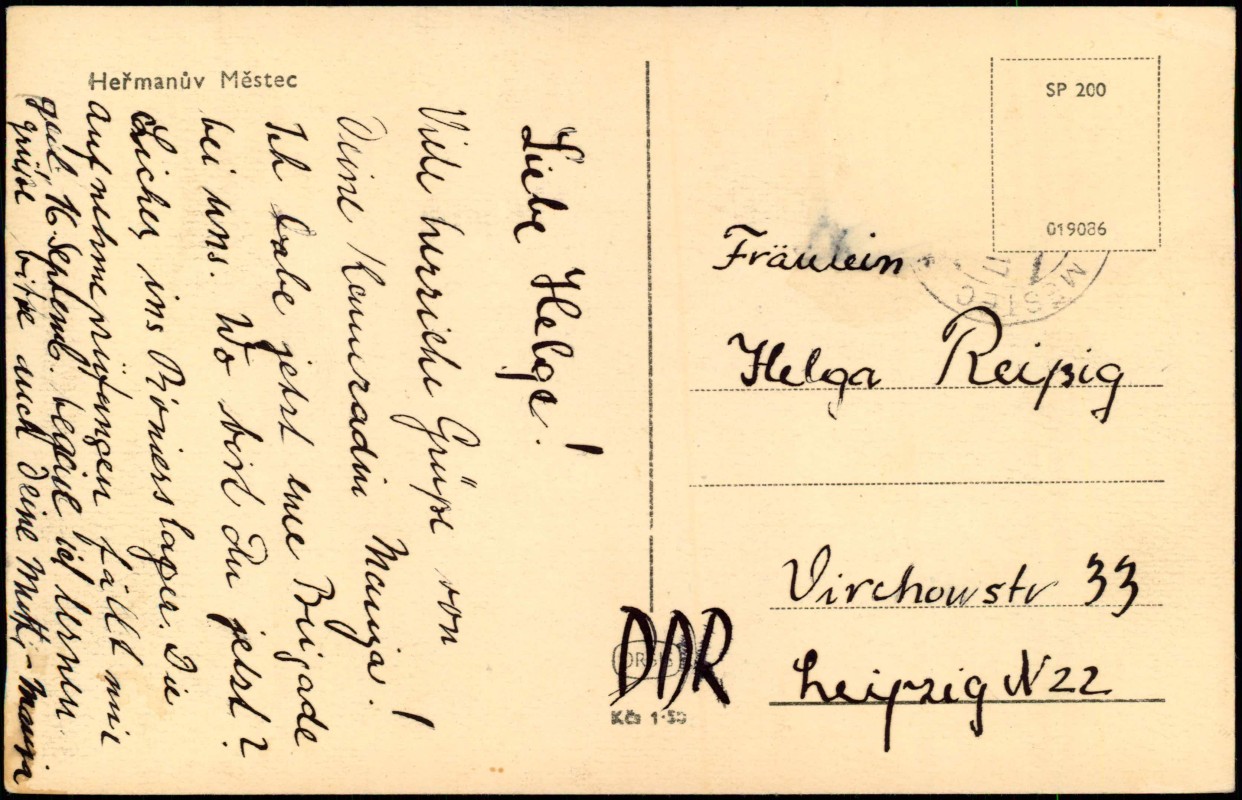 Heřmanův Městec
Liebe Helga!
Viele herzliche Grüße von
Deine Kameradin Maruja!
Ich habe jetzt eine Brigade
bei uns. Wo bist Du jetzt?
Sicher ins Pionierslager. Die
Aufnahmeprüfungen fällt mir
16. Septemb. begine ich lernen
grüße bitte auch Deine Mutti, –
SP 200
019086
MĚSTEC
Fräulein
Helga Reißig
Virchowstr 33
Leipzig N 22
DDR
ORBIS
Kčs 1·50